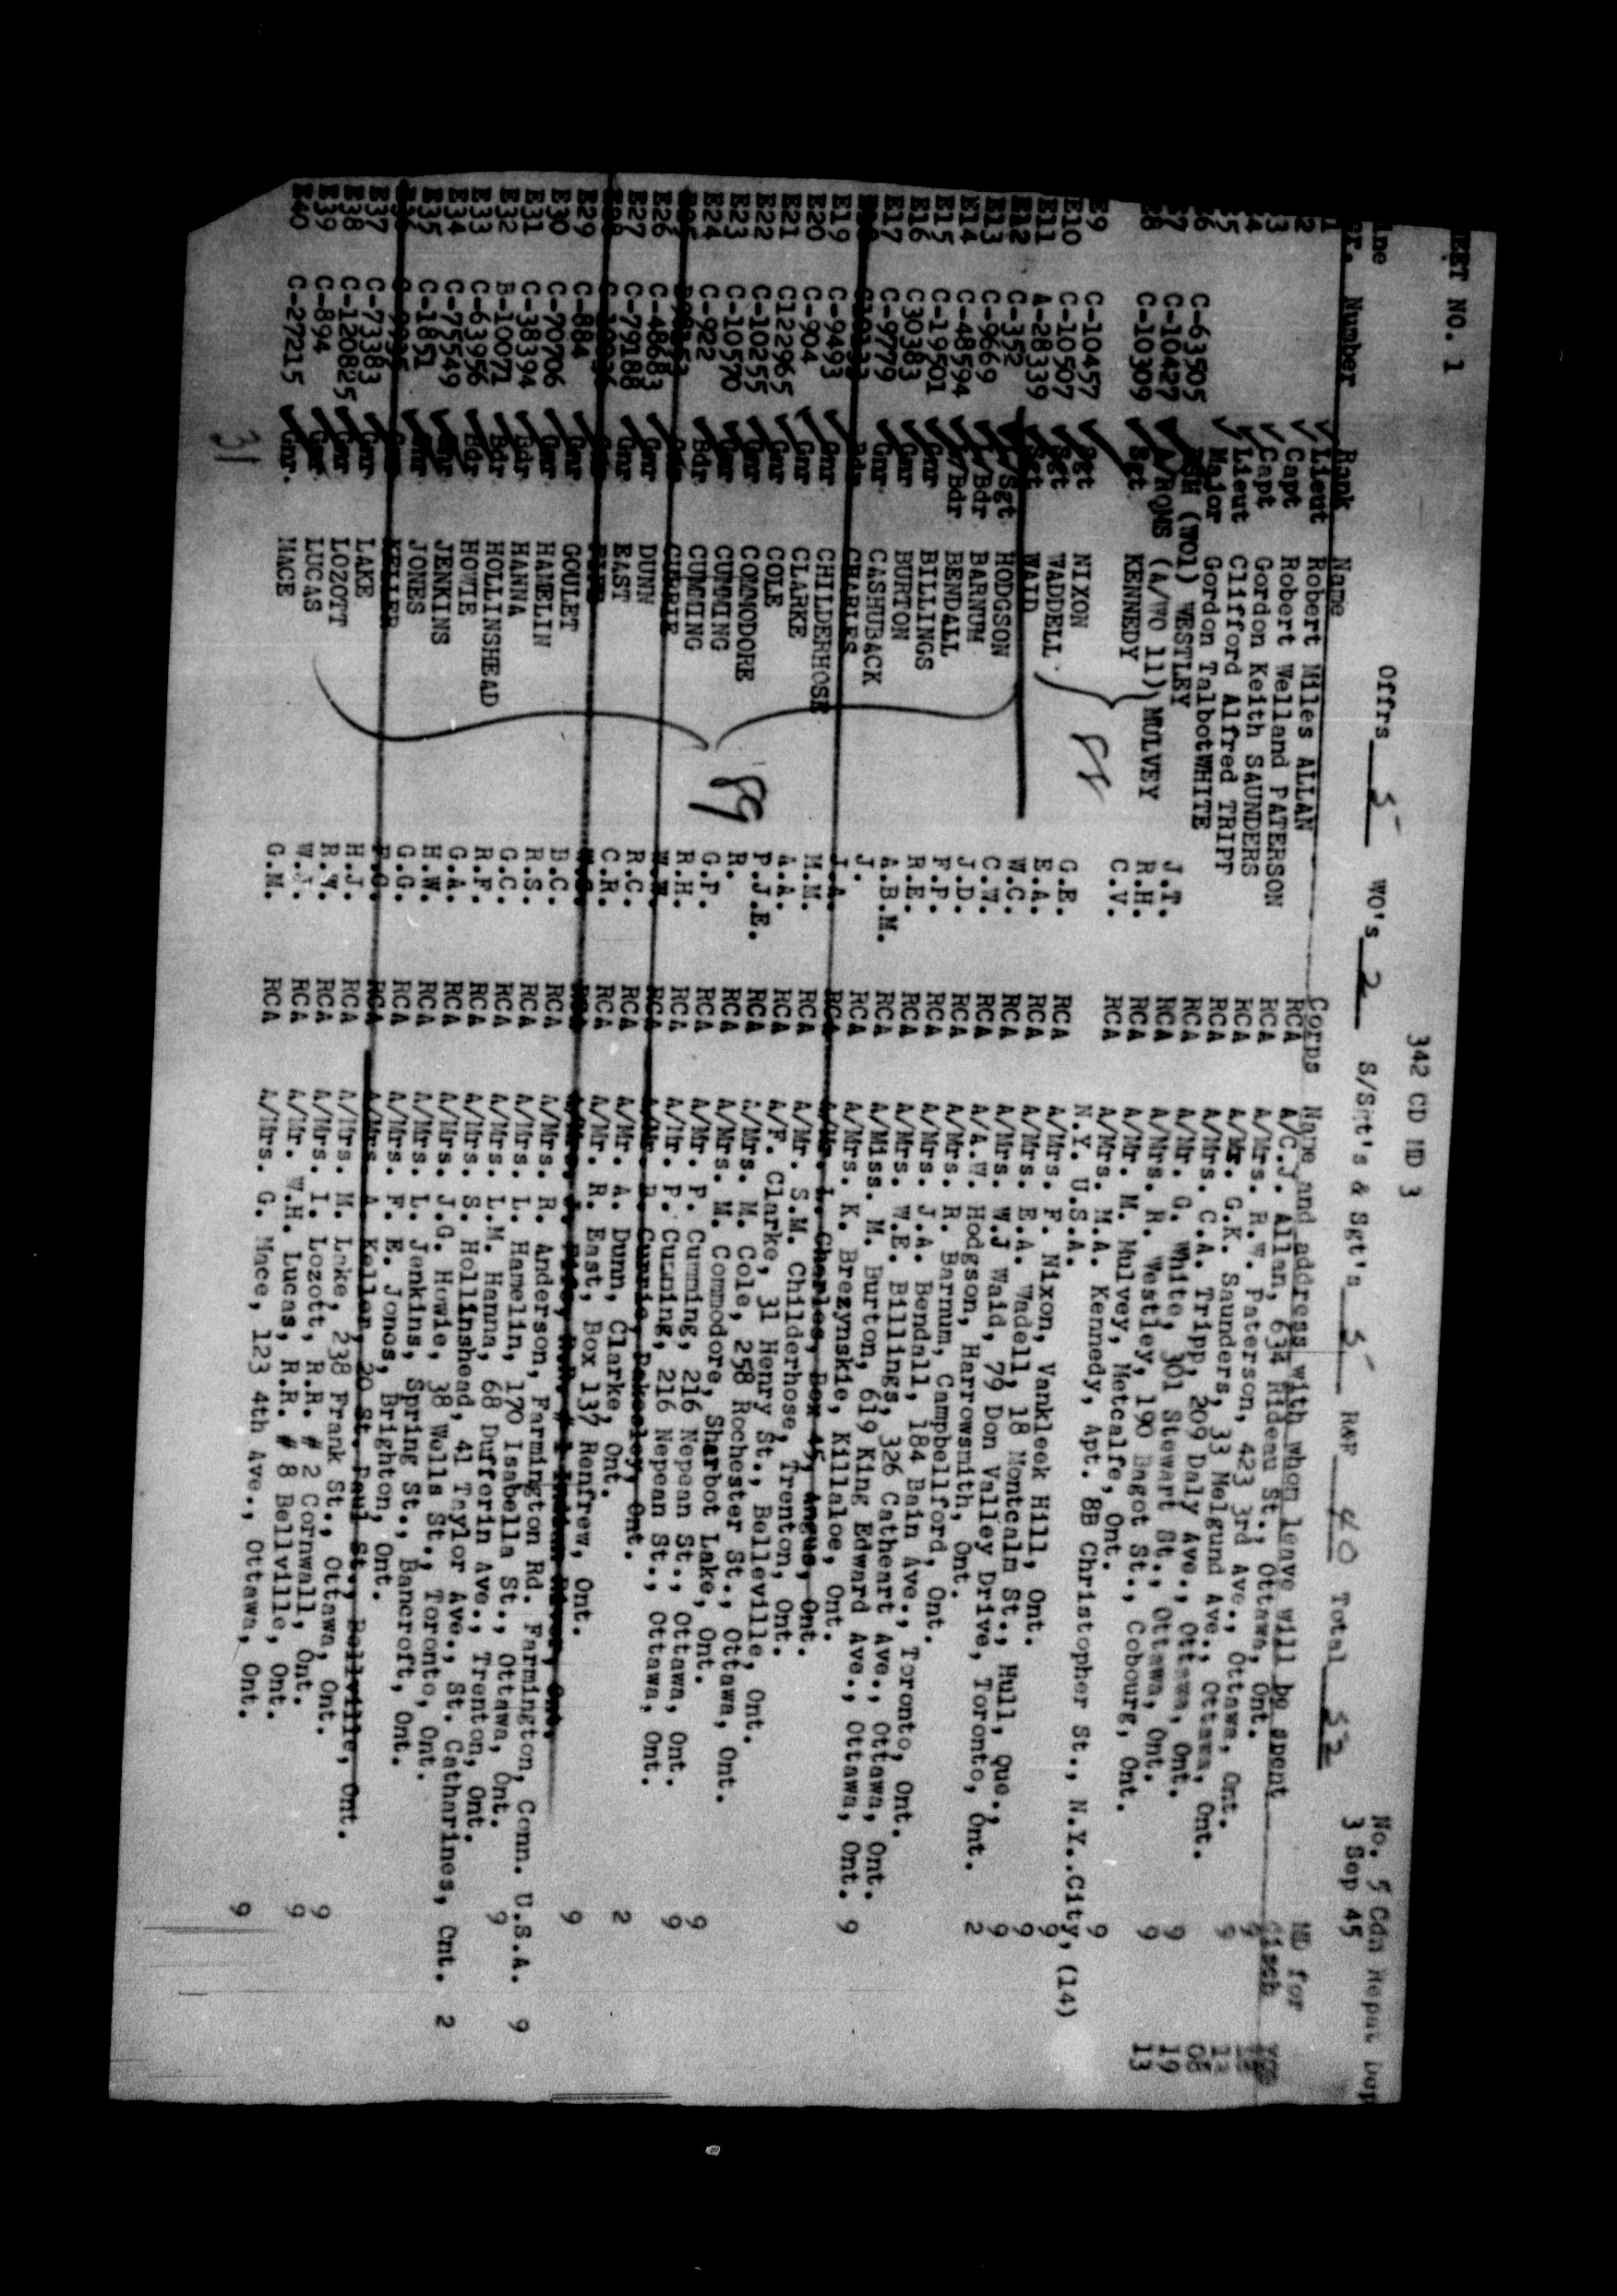 EET NO. 1
342 CD MD 3
No. 5 Cdn Repat Dep
3 Sep 45
Offrs 5 WO's 2 S/Sgt's & Sgt's 5 R&F 40 Total 52
Number Rank Name Corps Name and address with whom leave will be spent MD for
1 Lieut Robert Miles ALLAN RCA A/C.J. Allan, 634 Rideau St., Ottawa, Ont.
2 Capt Robert Welland PATERSON RCA A/Mrs. R.W. Paterson, 423 3rd Ave., Ottawa, Ont.
3 Capt Gordon Keith SAUNDERS RCA A/Mr. G.K. Saunders, 33 Melgund Ave., Ottawa, Ont.
4 Lieut Clifford Alfred TRIPP RCA A/Mrs. C.A. Tripp, 209 Daly Ave., Ottawa, Ont. 9
5 Major Gordon TalbotWHITE RCA A/Mr. G. White, 301 Stewart St., Ottawa, Ont.
6 C-63505 RSM (WO1) WESTLEY J.T. RCA A/Mrs. R. Westley, 190 Bagot St., Cobourg, Ont. 9 19
7 C-10427 A/RQMS (A/WO 11) MULVEY R.H. RCA A/Mr. M. Mulvey, Metcalfe, Ont. 9 13
E8 C-10309 Sgt KENNEDY C.V. RCA A/Mrs. M.A. Kennedy, Apt. 8B Christopher St., N.Y..City, (14)
N.Y. U.S.A. 9
E9 C-10457 Sgt NIXON G.E. RCA A/Mrs. F. Nixon, Vankleek Hill, Ont. 9
E10 C-10507 Sgt WADDELL E.A. RCA A/Mrs. E.A. Wadell, 18 Montcalm St., Hull, Que., 9
E11 A-28339 Sgt WAID W.C. RCA A/Mrs. W.J Waid, 79 Don Valley Drive, Toronto, Ont. 9
E12 C-352 L/Sgt HODGSON C.W. RCA A/A.W. Hodgson, Harrowsmith, Ont. 2
E13 C-9669 L/Bdr BARNUM J.D. RCA A/Mrs. R. Barnum, Campbellford, Ont.
E14 C-48594 L/Bdr BENDALL F.P. RCA A/Mrs. J.A. Bendall, 184 Bain Ave., Toronto, Ont.
E15 C-19501 Gnr BILLINGS R.E. RCA A/Mrs. W.E. Billings, 326 Cathcart Ave., Ottawa, Ont.
E16 C30383 Gnr BURTON A.B.M. RCA A/Miss. M. Burton, 619 King Edward Ave., Ottawa, Ont. 9
E17 C-9779 Gnr CASHUBACK J. RCA A/Mrs. K. Brezynskie, Killaloe, Ont.
CHARLES J.A. RCA A/Mr. L. Charles, Box 45, Angus, Ont.
E19 C-9493 Gnr CHILDERHOSE M.M. RCA A/Mr. S.M. Childerhose, Trenton, Ont.
E20 C-904 Gnr CLARKE A.A. RCA A/F. Clarke, 31 Henry St., Belleville, Ont.
E21 C122965 Gnr COLE P.J.E. RCA A/Mrs. M. Cole, 258 Rochester St., Ottawa, Ont.
E22 C-10255 Gnr COMMODORE R. RCA A/Mrs. M. Commodore, Sharbot Lake, Ont.
E23 C-10570 Gnr CUMMING G.P. RCA A/Mr. P. Cumming, 216 Nepean St., Ottawa, Ont. 9
E24 C-922 Bdr CUMMING R.H. RCA A/Mr. P. Cumming, 216 Nepean St., Ottawa, Ont. 9
E25 CURRIE RCA A/Mr. B. Currie, Ont.
E26 C-48683 Gnr DUNN R.C. RCA A/Mr. A. Dunn, Clarke, Ont. 2
E27 C-79188 Gnr EAST C.R. RCA A/Mr. R. East, Box 137 Renfrew, Ont. 9
RCA
E29 C-884 Gnr GOULET B.C. RCA A/Mrs. R. Anderson, Farmington Rd. Farmington, Conn. U.S.A. 9
E30 C-70706 Gnr HAMELIN R.S. RCA A/Mrs. L. Hamelin, 170 Isabella St., Ottawa, Ont. 9
E31 C-38394 Bdr HANNA G.C. RCA A/Mrs. L.M. Hanna, 68 Dufferin Ave., Trenton, Ont.
E32 B-10071 Bdr HOLLINSHEAD R.F. RCA A/Mrs. S. Hollinshead, 41 Taylor Ave., St. Catharines, Ont. 2
E33 C-63956 Bdr HOWIE G.A. RCA A/Mrs. J.G. Howie, 38 Wells St., Toronto, Ont.
E34 C-75549 Gnr JENKINS H.W. RCA A/Mrs. L. Jenkins, Spring St., Bancroft, Ont.
E35 C-1851 Gnr JONES G.G. RCA A/Mrs. F. E. Jones, Brighton, Ont.
KELLER RCA A/Mrs A. Keller, 20 St. Paul St., Belleville, Ont.
E37 C-73383 Gnr LAKE H.J. RCA A/Mrs. M. Lake, 238 Frank St., Ottawa, Ont. 9
E38 C-120825 Gnr LOZOTT R.W. RCA A/Mrs. I. Lozott, R.R. # 2 Cornwall, Ont. 9
E39 C-894 Gnr LUCAS W.J. RCA A/Mr. W.H. Lucas, R.R. # 8 Bellville, Ont.
E40 C-27215 Gnr. MACE G.M. RCA A/Mrs. G. Mace, 123 4th Ave., Ottawa, Ont. 9
89
31